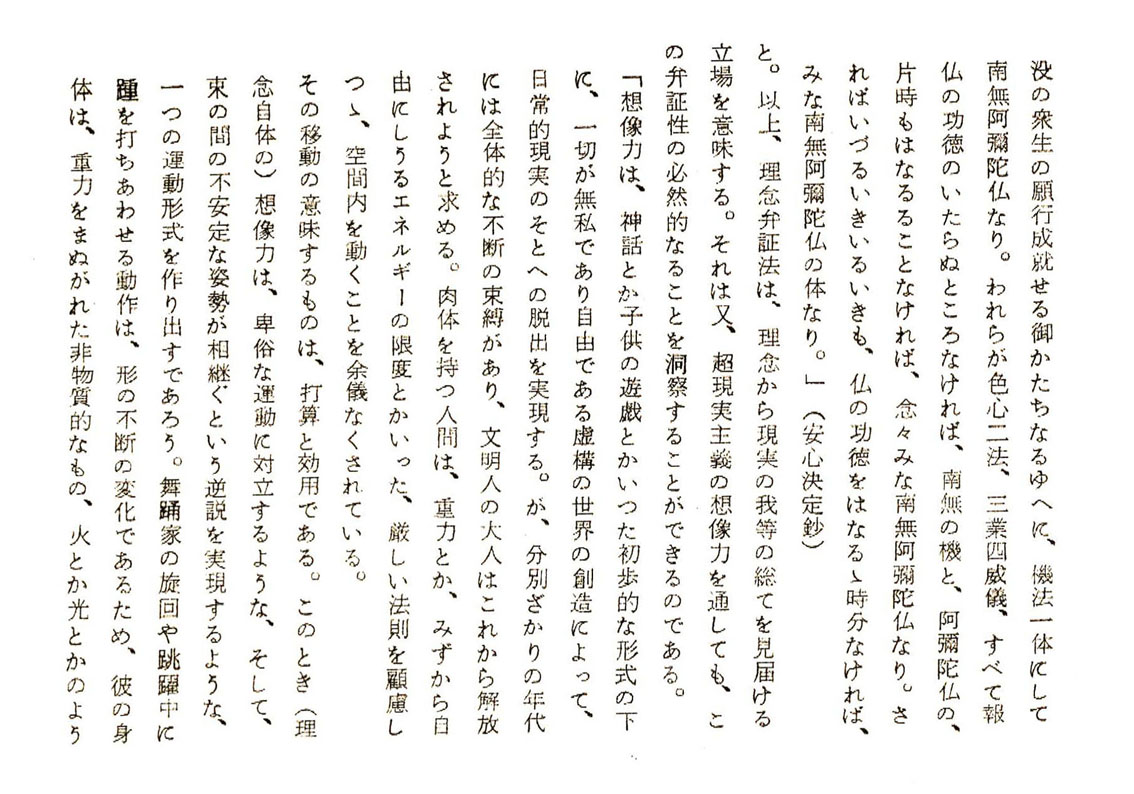 没の衆生の願行成就せる御かたちなるゆへに、機法一体にして
南無阿彌陀仏なり。われらが色心二法、三業四威儀、すべて報
仏の功徳のいたらぬところなければ、南無の機と、阿彌陀仏の、
片時もはなるることなければ、念々みな南無阿彌陀仏なり。さ
ればいづるいきいるいきも、仏の功徳をはなるゝ時分なければ、
みな南無阿彌陀仏の体なり。」（安心決定鈔）
と。以上、理念弁証法は、理念から現実の我等の総てを見届ける
立場を意味する。それは又、超現実主義の想像力を通しても、こ
の弁証性の必然的なることを洞察することができるのである。
「想像力は、神話とか子供の遊戯とかいつた初歩的な形式の下
に、一切が無私であり自由である虚構の世界の創造によって、
日常的現実のそとへの脱出を実現する。が、分別ざかりの年代
には全体的な不断の束縛があり、文明人の大人はこれから解放
されようと求める。肉体を持つ人間は、重力とか、みずから自
由にしうるエネルギーの限度とかいった、厳しい法則を顧慮し
つゝ、空間内を動くことを余儀なくされている。
その移動の意味するものは、打算と効用である。このとき（理
念自体の）想像力は、卑俗な運動に対立するような、そして、
束の間の不安定な姿勢が相継ぐという逆説を実現するような、
一つの運動形式を作り出すであろう。舞踊家の旋回や跳躍中に
踵を打ちあわせる動作は、形の不断の変化であるため、彼の身
体は、重力をまぬがれた非物質的なもの、火とか光とかのよう